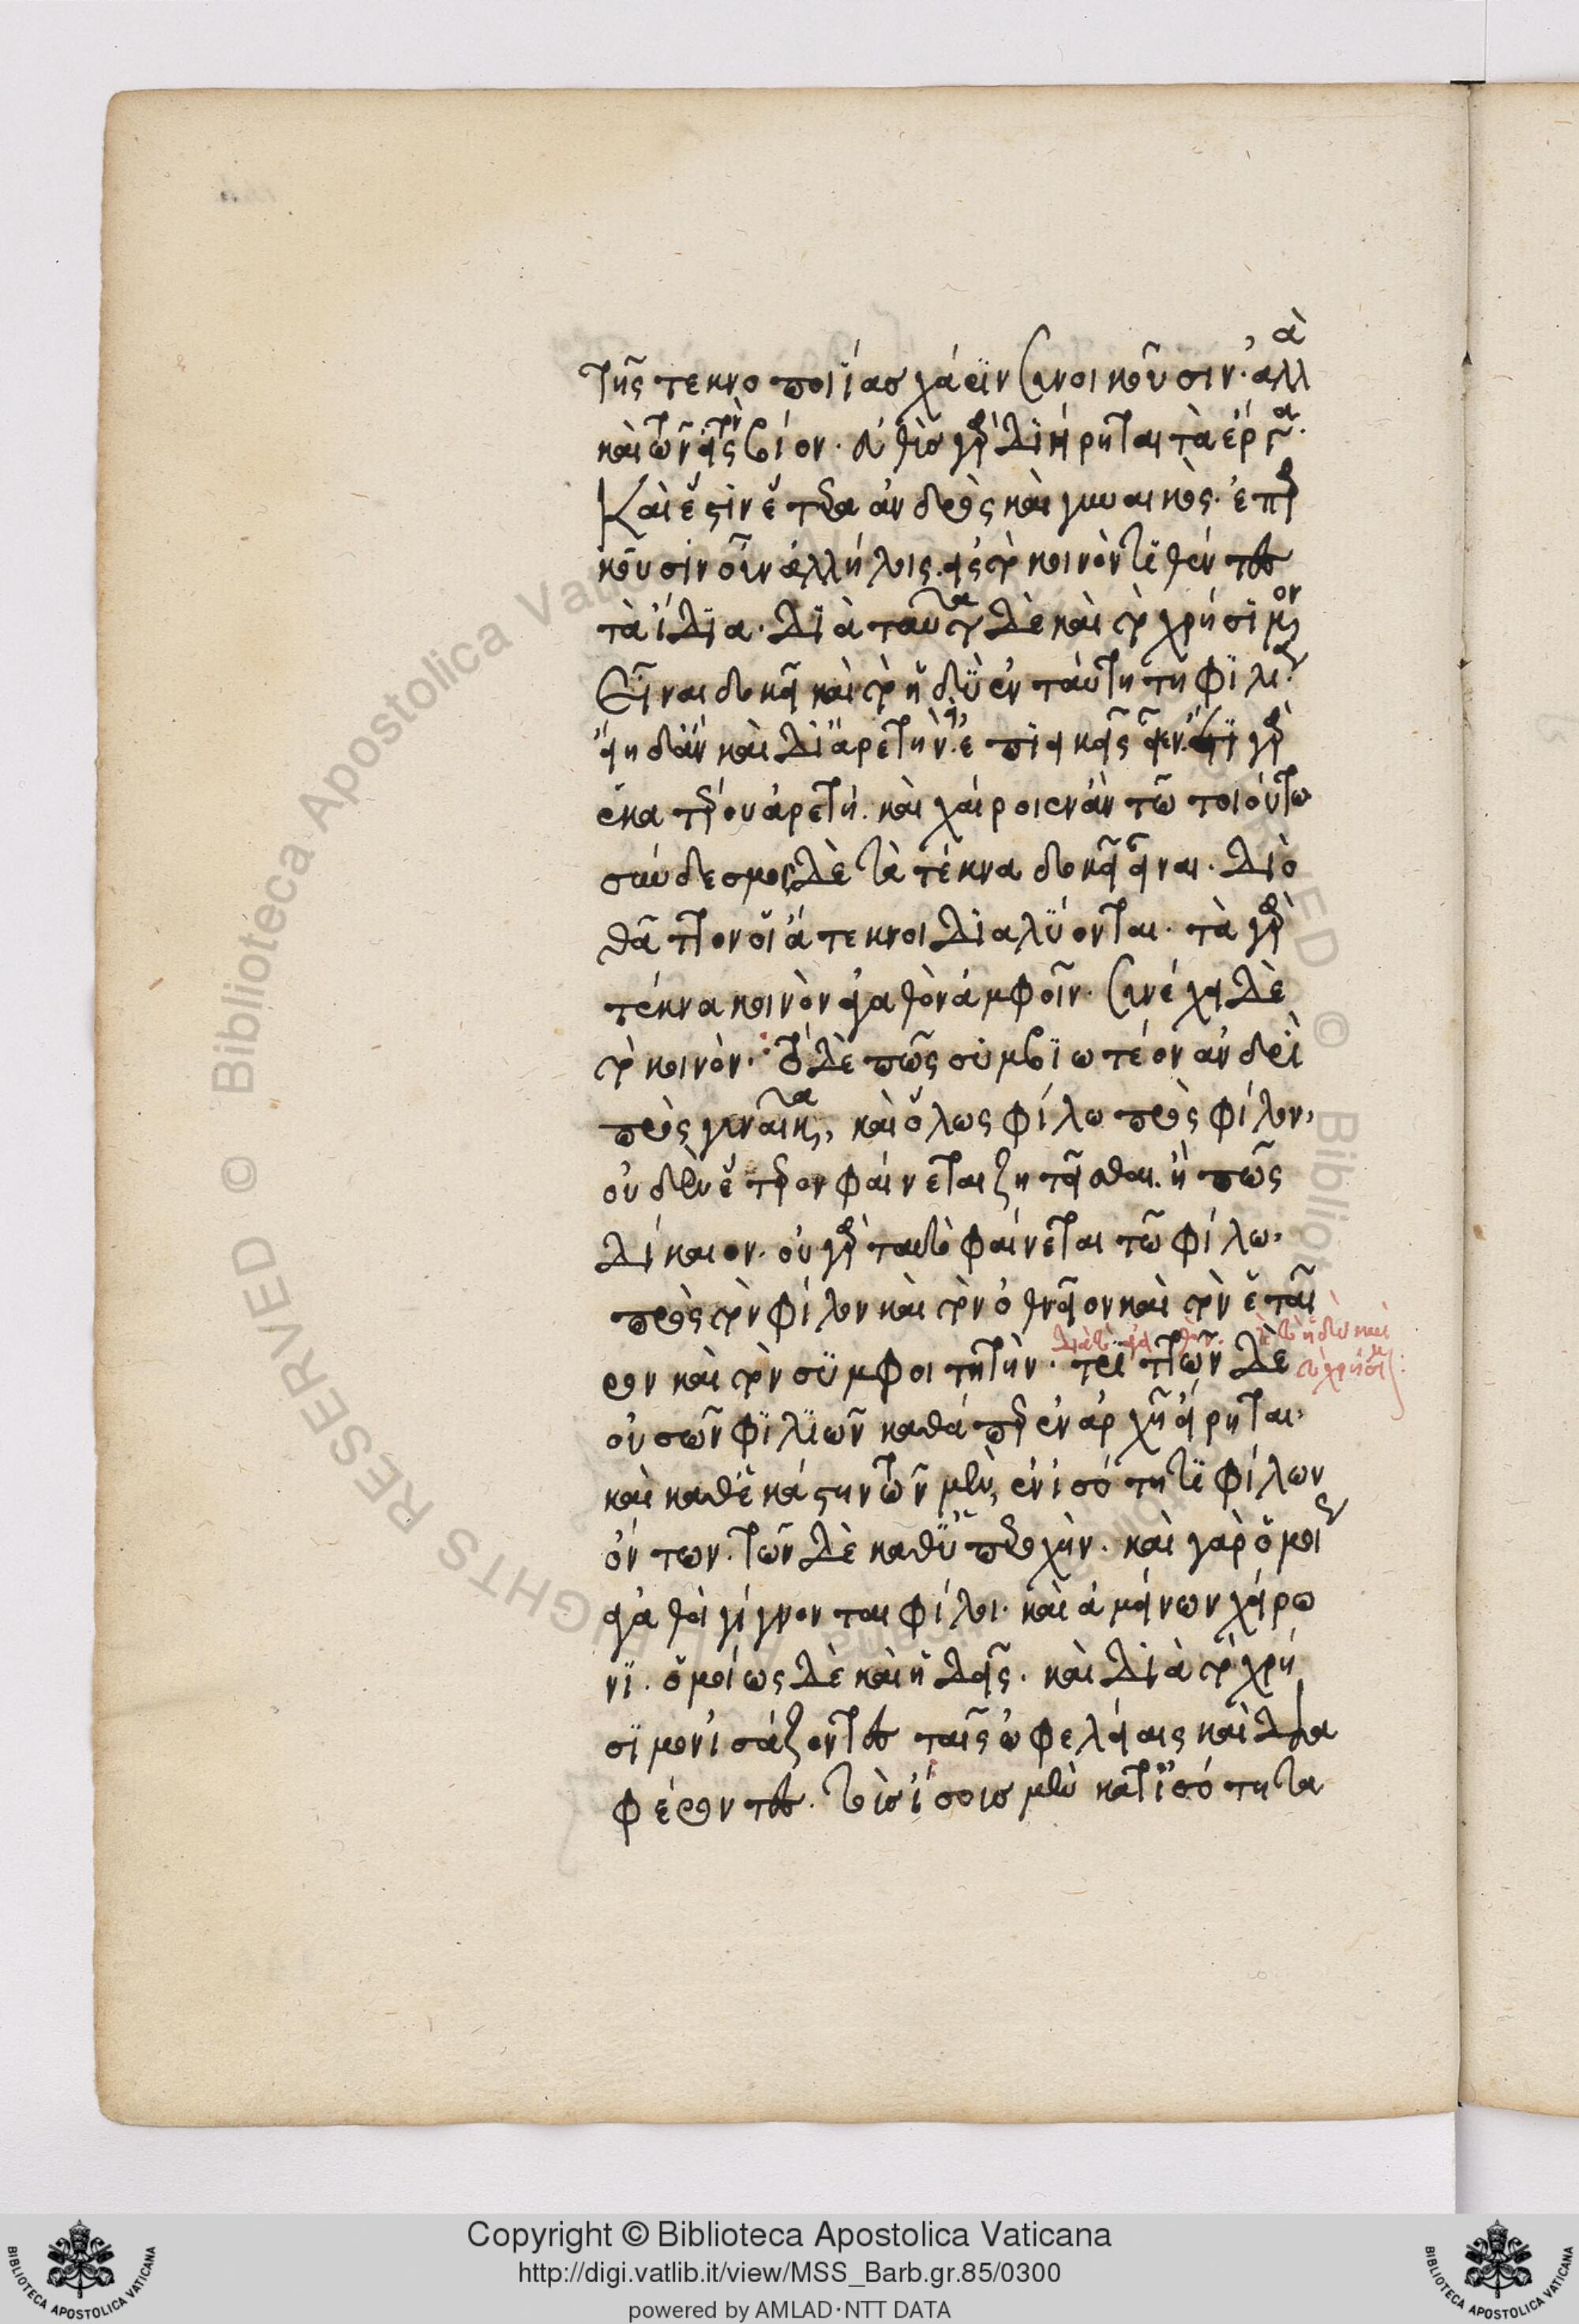 τῆς τεκνοποιΐας χάριν συνοικοῦσιν· ἀλλὰ
καὶ τῶν εἰς τὸν βίον. εὐθὺς γὰρ διῄρηται τὰ ἔργα.
Καὶ ἔστιν ἕτερα ἀνδρὸς καὶ γυναικός. ἐπαρ
κοῦσιν οὖν ἀλλήλοις. εἰς τὸ κοινὸν τιθέντες
τὰ ἴδια. διὰ ταῦτα δὲ καὶ τὸ χρήσιμον
εἶναι δοκεῖ καὶ τὸ ἡδὺ ἐν ταύτῃ τῇ φιλίᾳ.
εἴη δ' ἂν καὶ δι' ἀρετὴν. εἰ ἐπιεικεῖς εἶεν. ἔστι γὰρ
ἑκατέρου ἀρετή. καὶ χαίροιεν ἂν τῷ τοιούτῳ
σύνδεσμος δὲ τὰ τέκνα δοκεῖ εἶναι. διὸ
θᾶττον οἱ ἄτεκνοι διαλύονται. τὰ γὰρ
τέκνα κοινὸν ἀγαθὸν ἀμφοῖν. συνέχει δὲ
τὸ κοινὸν. τὸ δὲ πῶς συμβιωτέον ἀνδρὶ
πρὸς γυναῖκα, καὶ ὅλως φίλῳ πρὸς φίλον,
οὐδὲν ἕτερον φαίνεται ζητεῖσθαι. ἢ πῶς
δίκαιον. οὐ γὰρ ταυτὸ φαίνεται τῷ φίλῳ,
πρὸς τὸν φίλον καὶ τὸν ὀθνεῖον καὶ τὸν ἑταῖ
ρον καὶ τὸν συμφοιτητὴν. τριττῶν δὲ
διὰ τὸ ἀγαθὸν. τὸ ἡδὺ καὶ
τὸ χρήσιμον:
οὐσῶν φιλιῶν καθάπερ ἐν ἀρχῇ εἴρηται,
καὶ καθ' ἑκάστην τῶν μὲν, ἐν ἰσότητι φίλων
ὄντων. τῶν δὲ καθ' ὑπεροχὴν. καὶ γὰρ ὁμοίως
ἀγαθοὶ γίγνονται φίλοι. καὶ ἀμείνων χείρο
νι. ὁμοίως δὲ καὶ ἡδεῖς. καὶ διὰ τὸ χρή
σιμον ἰσάζοντες ταῖς ὠφελείαις καὶ δια
φέροντες. τοὺς ἴσους μὲν κατ' ἰσότητα
Copyright © Biblioteca Apostolica Vaticana
http://digi.vatlib.it/view/MSS_Barb.gr.85/0300
powered by AMLAD·NTT DATA